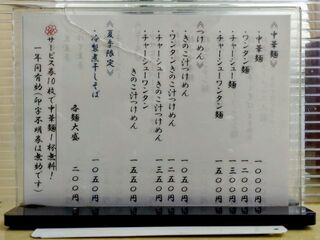 ≪中華麺≫
・中華麺 一〇〇〇円
・ワンタン麺 一三〇〇円
・チャーシュー麺 一三〇〇円
・チャーシューワンタン麺 一五〇〇円
≪つけめん≫
・きのこ汁つけめん 一〇五〇円
・ワンタンきのこ汁つけめん 一三五〇円
・チャーシューきのこ汁つけめん 一三五〇円
・チャーシューワンタンきのこ汁つけめん 一五五〇円
≪夏季限定≫
・冷製煮干しそば 一〇五〇円
各麺大盛 二〇〇円
サービス券10枚で中華麺1杯無料!
一年間有効(印字不明券は無効です)